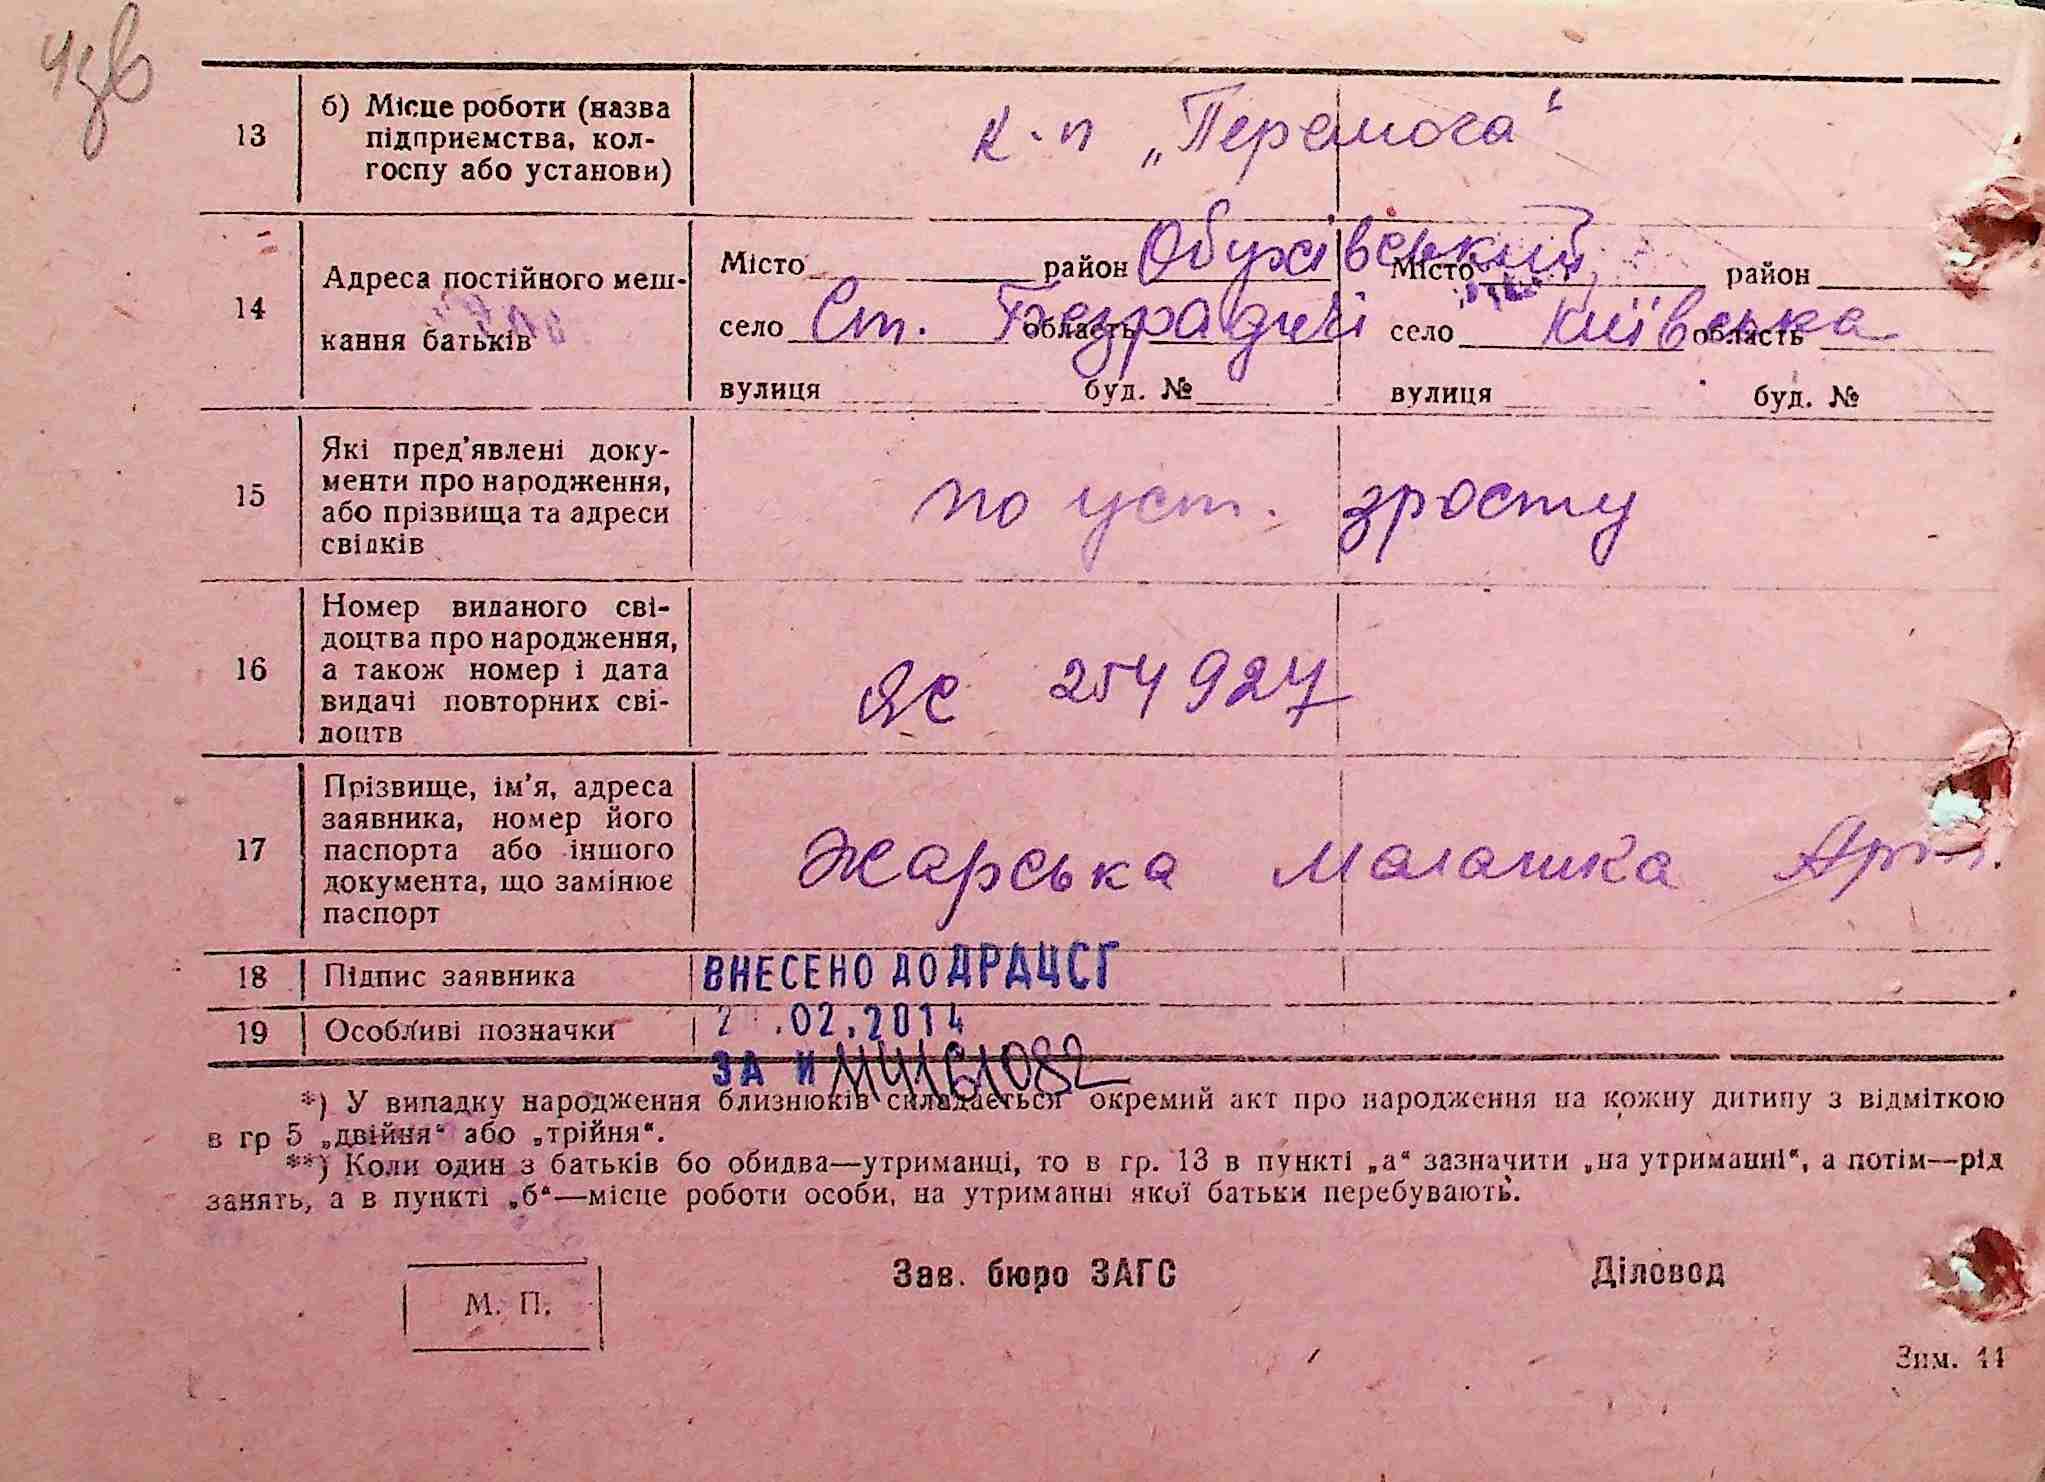 13
б) Місце роботи (назва
підприємства, кол-
госпу або установи)
к-п „Перемога"
14
Адреса постійного меш-
кання батьків
Місто район Обухівський Місто район
село Ст. Безрадичі область село Київська область
вулиця буд. № вулиця буд. №
15
Які пред'явлені доку-
менти про народження,
або прізвища та адреси
свідків
по уст. зросту
16
Номер виданого сві-
доцтва про народження,
а також номер і дата
видачі повторних сві-
доцтв
ЯС 254927
17
Прізвище, ім'я, адреса
заявника, номер його
паспорта або іншого
документа, що замінює
паспорт
Жарська Малашка Арт.
18 Підпис заявника
ВНЕСЕНО ДО ДРАЦСГ
19 Особливі позначки
2 .02.2014
ЗА №
*) У випадку народження близнюків складається окремий акт про народження на кожну дитину з відміткою
в гр 5 „двійня" або „трійня".
**) Коли один з батьків бо обидва—утриманці, то в гр. 13 в пункті „а" зазначити „на утриманні", а потім—рід
занять, а в пункті „б"—місце роботи особи, на утриманні якої батьки перебувають.
М. П.
Зав. бюро ЗАГС
Діловод
Зам. 11